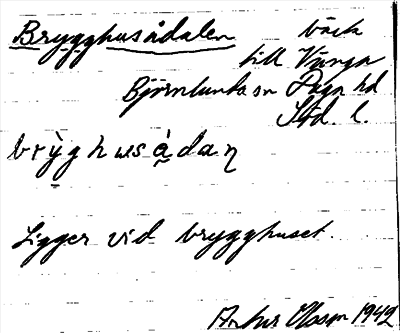 Brygghusådalen bäck
till Vånga
Björnlunda sn Daga hd
Söd. l.
brỳghusådaɳ
Ligger vid brygghuset.
Olsson 1942